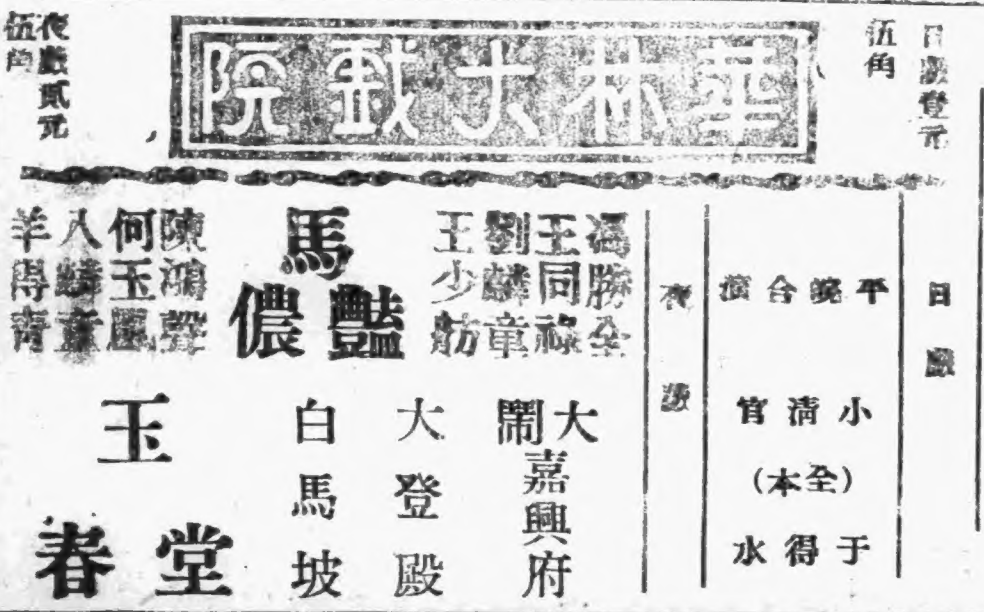 華林大戲院
日戲壹元
伍角
夜戲貳元
伍角
日戲
平皖合演
小清官
(全本)
于得水
夜戲
馮勝全
王同祿
劉麟童
王少舫
馬艷儂
陳鴻聲
何玉鳳
八麟童
羊得青
大鬧嘉興府
大登殿
白馬坡
玉堂春